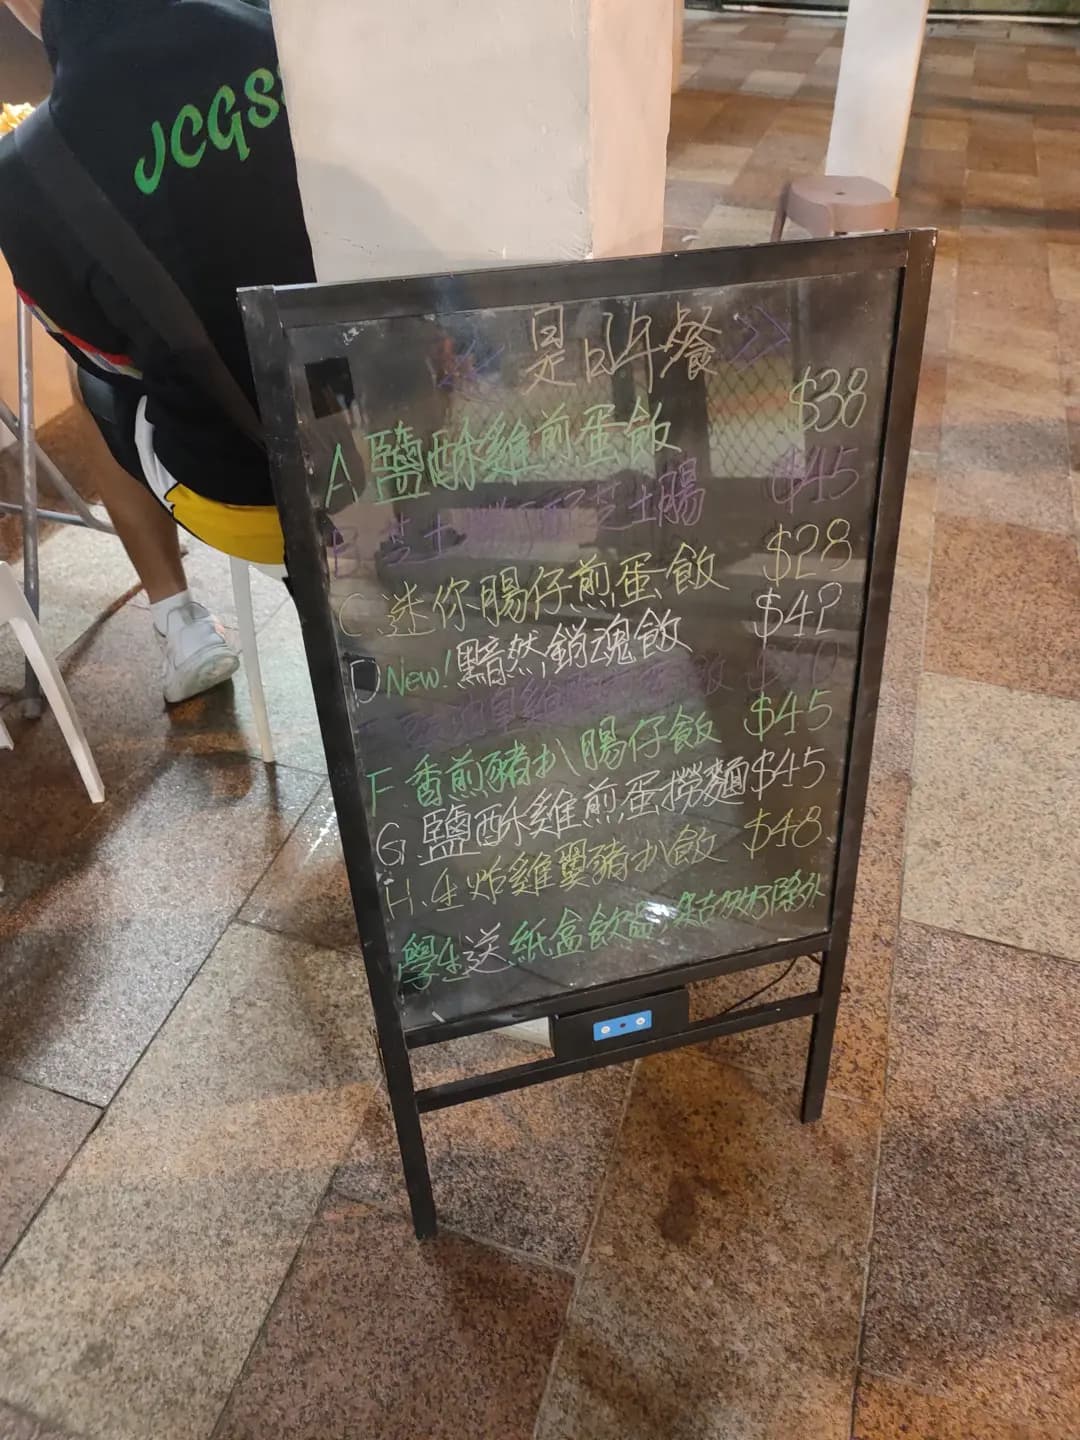 JCGS
<< 是日午餐 >>
A 鹽酥雞煎蛋飯 $38
B. 芝士 芝士腸 $45
C. 迷你腸仔煎蛋飯 $28
D New! 黯然銷魂飯 $42
煎蛋飯
F. 香煎豬扒腸仔飯 $45
G. 鹽酥雞煎蛋撈麵 $45
H. 生炸雞翼豬扒飯 $48
學生送紙盒飲品, 除外